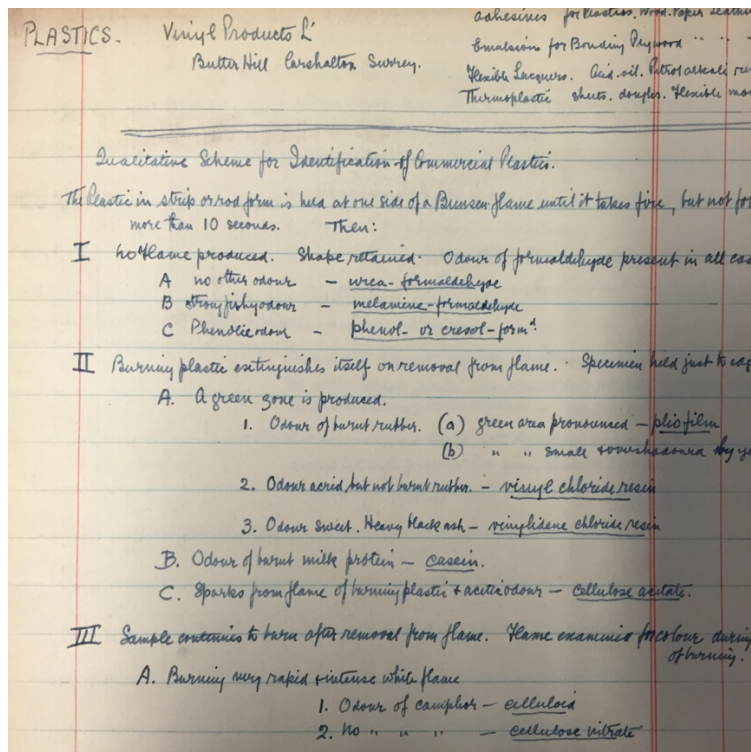 PLASTICS. Vinyl Products Lᵈ
Butter Hill Carshalton Surrey.
adhesives for Plastics. Wood. Paper Leather
Emulsions for Bonding Plywood " " "
Flexible Lacquers. Acid. oil. Petrol alkali
Thermoplastic sheets. doughs. Flexible
Qualitative Scheme for Identification of Commercial Plastics.
The Plastic in strip or rod form is held at one side of a Bunsen flame until it takes fire, but not for
more than 10 seconds. Then:
I no flame produced. Shape retained. Odour of formaldehyde present in all cas
A no other odour – urea-formaldehyde
B strong fishy odour – melamine-formaldehyde
C Phenolic odour – phenol- or cresol-formᵈ.
II Burning plastic extinguishes itself on removal from flame. Specimen held just to edg
A. A green zone is produced.
1. Odour of burnt rubber. (a) green area pronounced – pliofilm
(b) " " small & overshadowed by ye
2. Odour acrid, but not burnt rubber. – vinyl chloride resin
3. Odour sweet. Heavy black ash – vinylidene chloride resin
B. Odour of burnt milk protein – casein.
C. Sparks from flame of burning plastic & acetic odour – cellulose acetate.
III Sample continues to burn after removal from flame. Flame examined for colour during
of burning.
A. Burning very rapid & intense white flame
1. Odour of camphor – celluloid
2. no " " " – cellulose nitrate